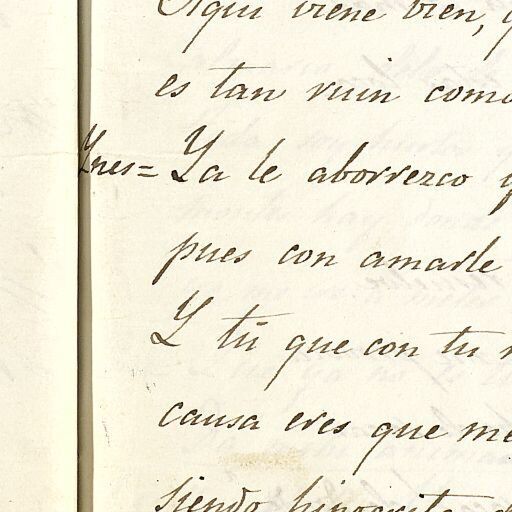 Aqui viene bien,
es tan ruin como
Ynes= Ya le aborrezco
pues con amarle
Y tú que con tu
causa eres que me
siendo hipocrita